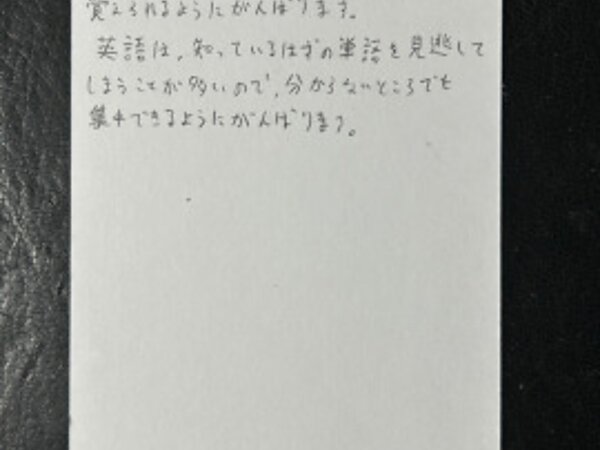 覚えられるようにがんばります。
英語は、知っているはずの単語を見逃して
しまうことが多いので、分からないところでも
集中できるようにがんばります。